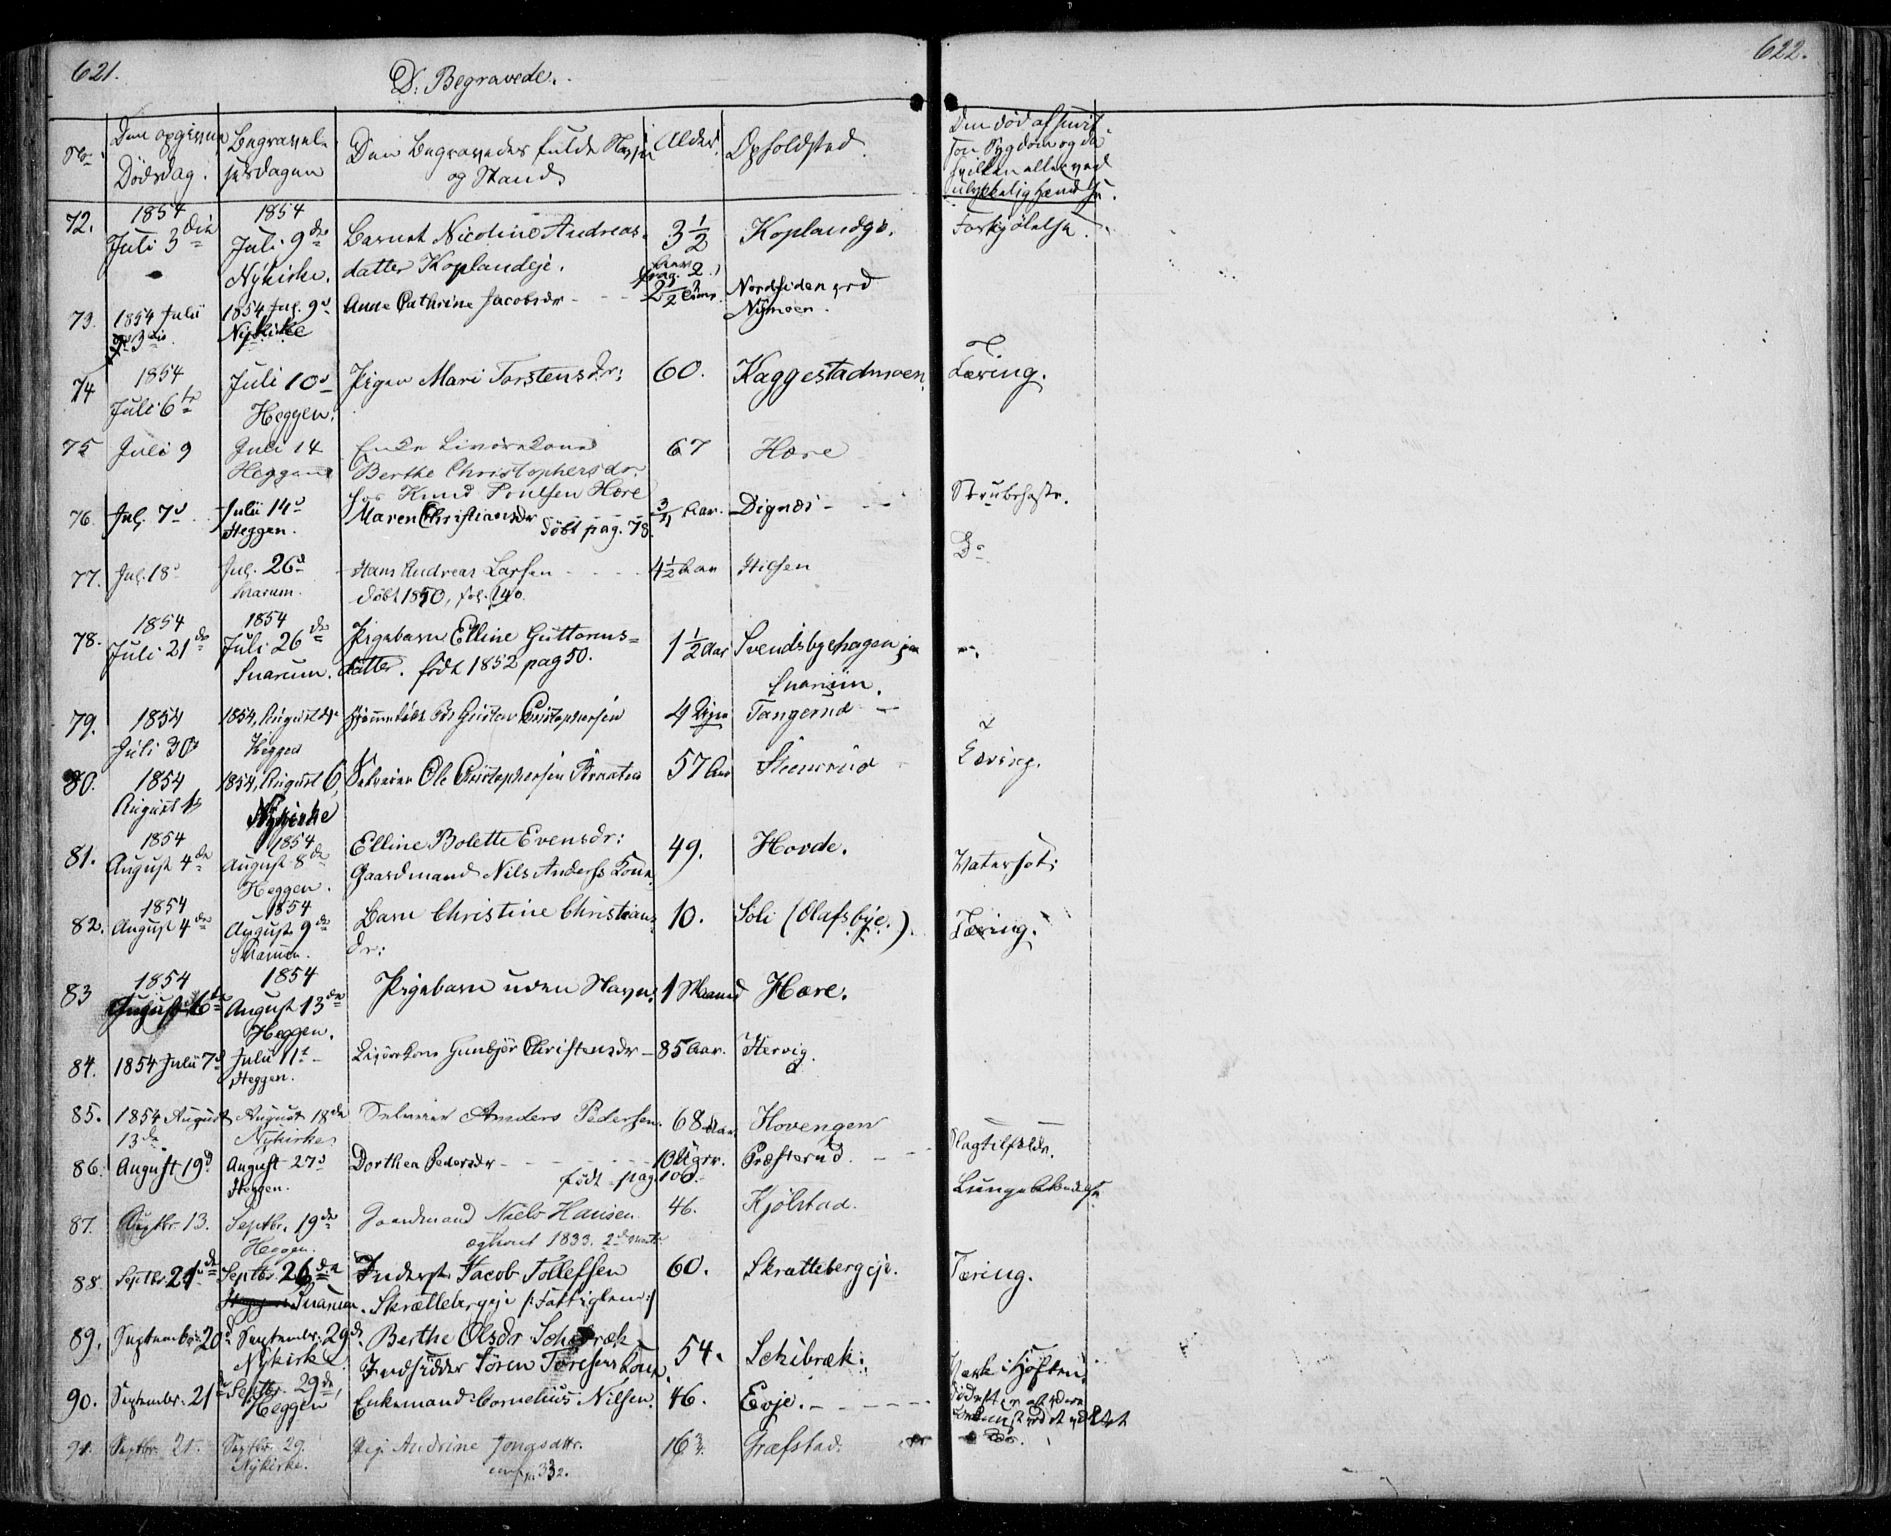 621.
D. Begravede.
622.
No.
Den opgivne Dødsdag.
Begravelsesdagen
Den Begravedes fulde Navn og Stand.
Alder.
Opholdsted.
72. 1854 Juli 3die 1854 Juli 9de Nykirke. Barnet Nicoline Andreasdatter Koplandeje. 3 1/2 Koplandeje. Forkjølelse.
73. 1854 Julii 3die 1854 Jul. 9d Nykirke Anne Cathrine Jacobsdr 2 1/2 Nordsiden ved Nymoen.
74 1854 Juli 6te Juli 10d Heggen. Pigen Mari Torstensdr: 60. Kaggestadmoen. Tæring.
75 Juli 9 Juli 14 Heggen Enke Livørekone Berthe Christophersdr. for Knud Poulsen Hære 67 Hære
76. Jul. 7d Julii 14d Heggen. Maren Christiansdr døbt pag. 78. 3/4 Aar. Dignæs Strubehoste.
77. Jul. 18d Jul. 26d Snarum. Hans Andreas Larsen døbt 1850, fol. 140. 4 1/2 Aar Hilsen Do
78. 1854 Juli 21de 1854 Juli 26de Snarum. Pigebarn Elline Guttormsdatter. født 1852 pag 50. 1 1/2 Aar Svendsbyehagen Snarum.
79. 1854 Juli 30d 1854, August 4de Heggen Hjemmedøbt Gustav Christophersen 4 Tangerud
80. 1854 August 1d 1854, August 6, Nykirke Selveier Ole Christophersen Braaten 57 Aar Steensrud Tæring.
81. 1854 August 4de 1854 August 8de Heggen. Elline Bolette Evensdr: Gaardmand Nils Anders Kone. 49. Hovde. Vatersot.
82. 1854 August 4de 1854 August 9de Snarum. Barn Christine Christiansdr: 10. Soli (Olafsbye.) Tæring.
83 1854 August 6te 1854 August 13de Heggen. Pigebarn uden Navn. 1 Maaned Hære.
84. 1854 Julii 7d Julii 11t Heggen. Livørekone Gunbjør Christensdr 85 Aar. Hervig.
85. 1854 August 13de August 18de Nykirke Selveier Anders Pedersen. 68 Aar. Hovengen Slagtilfælde.
86. August 19d August 27d Heggen. Dorthea Pedersdr født pag. 100. 10 Uger. Præsterud. Lungebetændelse
87. Septbr. 13. Septbr. 19de Heggen. Gaardmand Niels Hansen 46. Kjølstad.
88. Septbr. 21de Septbr. 26de Snarum. Inderst Jacob Tollefsen Skrættebergeje /: Fattiglem :/ 60. Skrættebergeje. Tæring.
89. September 20d September 29d Nykirke Berthe Olsdr Schibræk Indsidder Søren Toresens Kone. 54. Schibræk. Værk i Hoften.
90. September. 21d Septbr. 29de Heggen Enkemand Cornelius Nilsen. 46. Evje.
91. Septbr. 21. Septbr. 29. Nykirke. Pige Andrine Jonasdtr. conf. p. 332. 16 3/4. Græfstad.